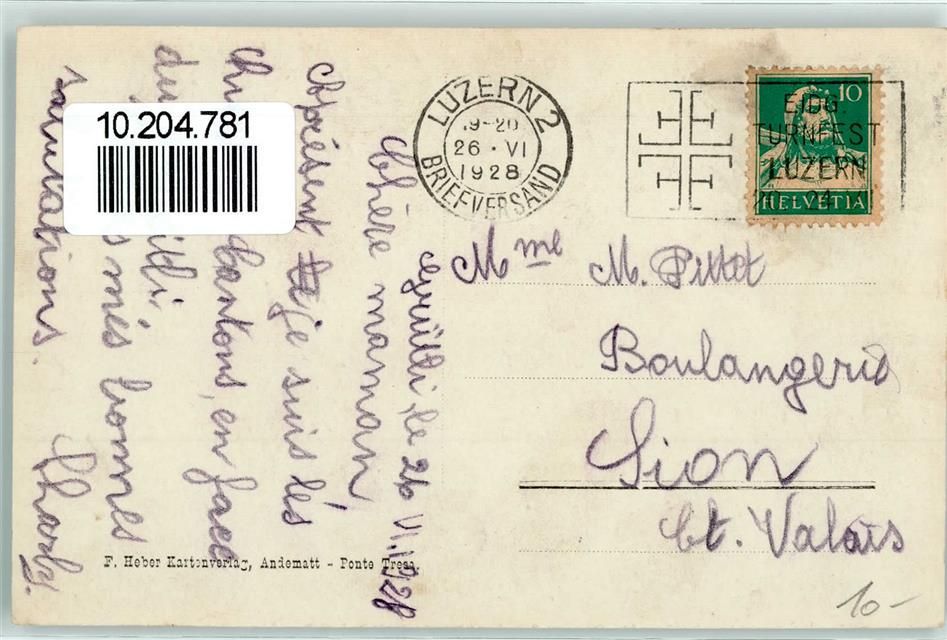 10.204.781
LUZERN 2
26 · VI
1928
BRIEFVERSAND
EIDG.
TURNFEST
LUZERN
10
HELVETIA
Grütli, le 26 VI. 1928
Chère maman
Apésent je suis lés
Cantons, en face
més bonnes
salutations. Charly.
Mme M. Pittet
Boulangerie
Sion
Ct. Valais
F. Heber Kartenverlag, Andermatt - Ponte Tresa.
10-